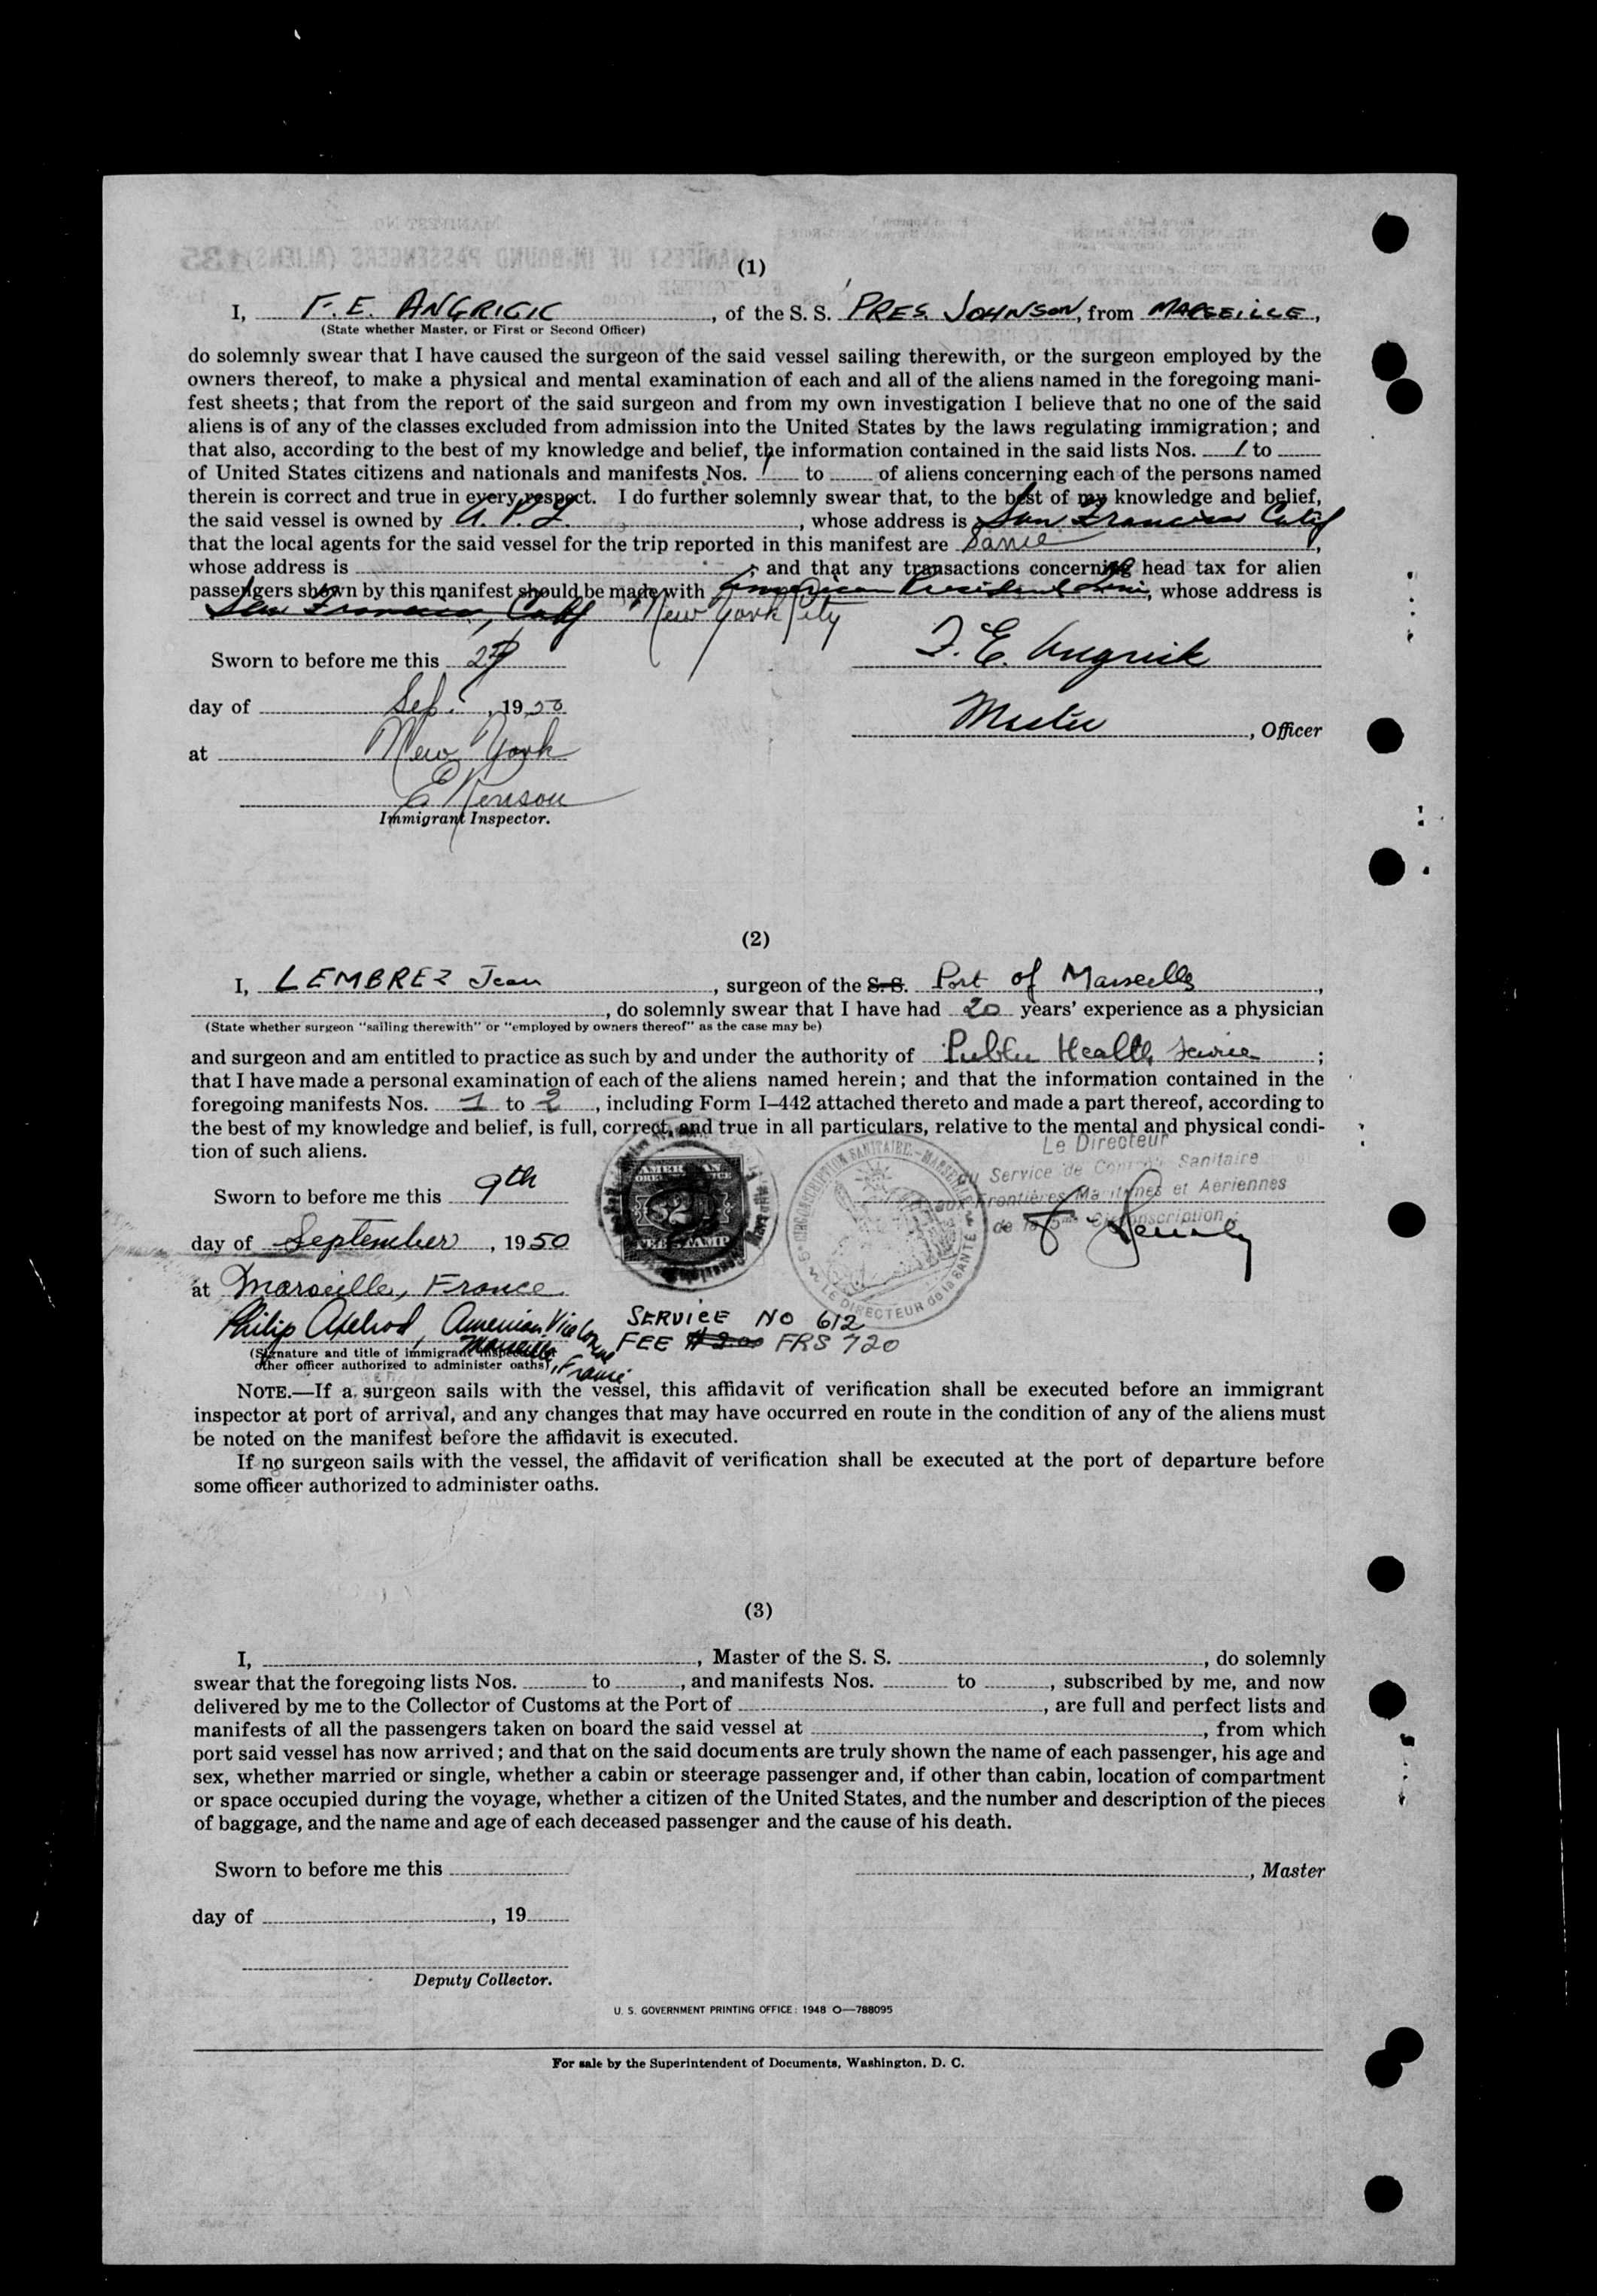 (1)
I, F. E. ANGRICK, of the S. S. PRES. JOHNSON, from MARSEILLE,
(State whether Master, or First or Second Officer)
do solemnly swear that I have caused the surgeon of the said vessel sailing therewith, or the surgeon employed by the
owners thereof, to make a physical and mental examination of each and all of the aliens named in the foregoing mani-
fest sheets; that from the report of the said surgeon and from my own investigation I believe that no one of the said
aliens is of any of the classes excluded from admission into the United States by the laws regulating immigration; and
that also, according to the best of my knowledge and belief, the information contained in the said lists Nos. 1 to
of United States citizens and nationals and manifests Nos. 1 to of aliens concerning each of the persons named
therein is correct and true in every respect. I do further solemnly swear that, to the best of my knowledge and belief,
the said vessel is owned by A. P. L., whose address is San Francisco Calif
that the local agents for the said vessel for the trip reported in this manifest are Same,
whose address is ; and that any transactions concerning head tax for alien
passengers shown by this manifest should be made with American President Line, whose address is
San Francisco, Calf New York City
Sworn to before me this 27 F. E. Angrick
day of Sep., 1950 Master, Officer
at New York
E Kenson
Immigrant Inspector.
(2)
I, LEMBREZ Jean, surgeon of the S. S. Port of Marseille,
, do solemnly swear that I have had 20 years' experience as a physician
(State whether surgeon "sailing therewith" or "employed by owners thereof" as the case may be)
and surgeon and am entitled to practice as such by and under the authority of Public Health Service;
that I have made a personal examination of each of the aliens named herein; and that the information contained in the
foregoing manifests Nos. 1 to 2, including Form I-442 attached thereto and made a part thereof, according to
the best of my knowledge and belief, is full, correct, and true in all particulars, relative to the mental and physical condi-
tion of such aliens.
Le Directeur
du Service de Contrôle Sanitaire
aux Frontières Maritimes et Aériennes
de la 5me Circonscription
AMERICAN
FEE STAMP
CIRCONSCRIPTION SANITAIRE - MARSEILLE
LE DIRECTEUR de la SANTÉ
Sworn to before me this 9th
day of September, 1950
at Marseille, France
Philip Axelrod, American Vice Consul
Marseille, France
SERVICE NO 612
FEE $2.00 FRS 720
(Signature and title of immigrant inspector
other officer authorized to administer oaths)
NOTE.—If a surgeon sails with the vessel, this affidavit of verification shall be executed before an immigrant
inspector at port of arrival, and any changes that may have occurred en route in the condition of any of the aliens must
be noted on the manifest before the affidavit is executed.
If no surgeon sails with the vessel, the affidavit of verification shall be executed at the port of departure before
some officer authorized to administer oaths.
(3)
I, , Master of the S. S. , do solemnly
swear that the foregoing lists Nos. to , and manifests Nos. to , subscribed by me, and now
delivered by me to the Collector of Customs at the Port of , are full and perfect lists and
manifests of all the passengers taken on board the said vessel at , from which
port said vessel has now arrived; and that on the said documents are truly shown the name of each passenger, his age and
sex, whether married or single, whether a cabin or steerage passenger and, if other than cabin, location of compartment
or space occupied during the voyage, whether a citizen of the United States, and the number and description of the pieces
of baggage, and the name and age of each deceased passenger and the cause of his death.
Sworn to before me this , Master
day of , 19
Deputy Collector.
U. S. GOVERNMENT PRINTING OFFICE: 1948 O—788095
For sale by the Superintendent of Documents, Washington, D. C.